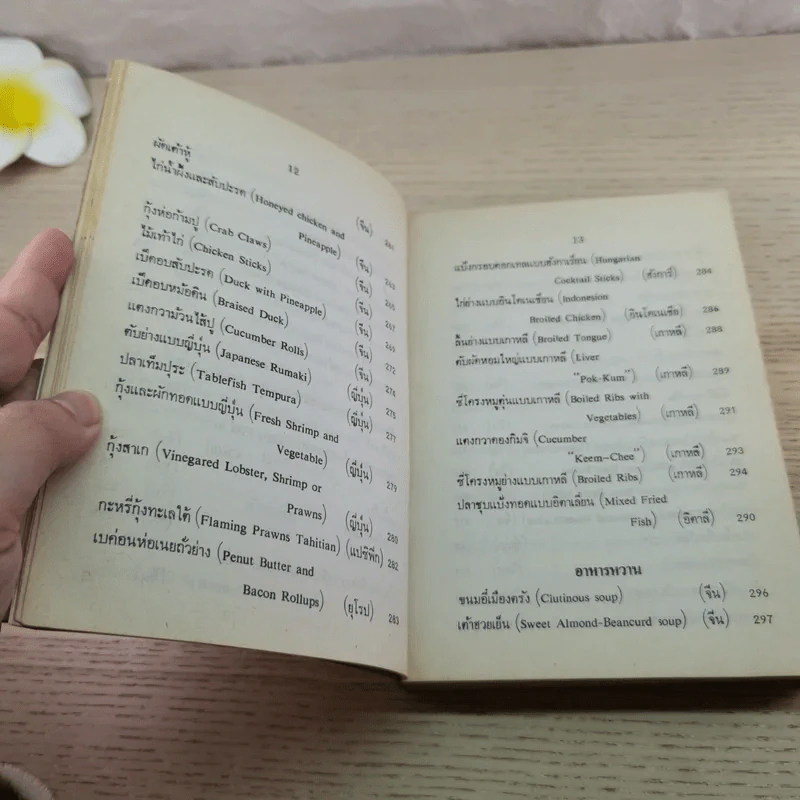 12
ผัดเต้าหู้
ไก่น้ำผึ้งและสับปะรด (Honeyed chicken and
Pineapple) (จีน)
กุ้งห่อก้ามปู (Crab Claws) (จีน) 263
ไม้เท้าไก่ (Chicken Sticks) (จีน) 265
เป็ดอบสับปะรด (Duck with Pineapple) (จีน) 267
เป็ดอบหม้อดิน (Braised Duck) (จีน) 269
แตงกวาม้วนไส้ปู (Cucumber Rolls) (จีน) 272
ตับย่างแบบญี่ปุ่น (Japanese Rumaki) (ญี่ปุ่น) 274
ปลาเท็มปุระ (Tablefish Tempura) (ญี่ปุ่น) 275
กุ้งและผักทอดแบบญี่ปุ่น (Fresh Shrimp and 277
Vegetable) (ญี่ปุ่น) 279
กุ้งสาเก (Vinegared Lobster, Shrimp or
Prawns) (ญี่ปุ่น) 280
กะหรี่กุ้งทะเลใต้ (Flaming Prawns Tahitian) (แปซิฟิก) 282
เบค่อนห่อเนยถั่วย่าง (Penut Butter and
Bacon Rollups) (ยุโรป) 283
13
แป้งกรอบคอกเทลแบบฮังกาเรียน (Hungarian
Cocktail Sticks) (ฮังการี) 284
ไก่ย่างแบบอินโดเนเซียน (Indonesion
Broiled Chicken) (อินโดเนเซีย) 286
ลิ้นย่างแบบเกาหลี (Broiled Tongue) (เกาหลี) 288
ตับผัดหอมใหญ่แบบเกาหลี (Liver
"Pok-Kum") (เกาหลี) 289
ซี่โครงหมูตุ๋นแบบเกาหลี (Boiled Ribs with
Vegetables) (เกาหลี) 291
แตงกวาดองกิมจิ (Cucumber
"Keem-Chee") (เกาหลี) 293
ซี่โครงหมูย่างแบบเกาหลี (Broiled Ribs) (เกาหลี) 294
ปลาชุบแป้งทอดแบบอิตาเลี่ยน (Mixed Fried
Fish) (อิตาลี) 290
อาหารหวาน
ขนมอี๋เมืองตรัง (Ciutinous soup) (จีน) 296
เต้าฮวยเย็น (Sweet Almond-Beancurd soup) (จีน) 297